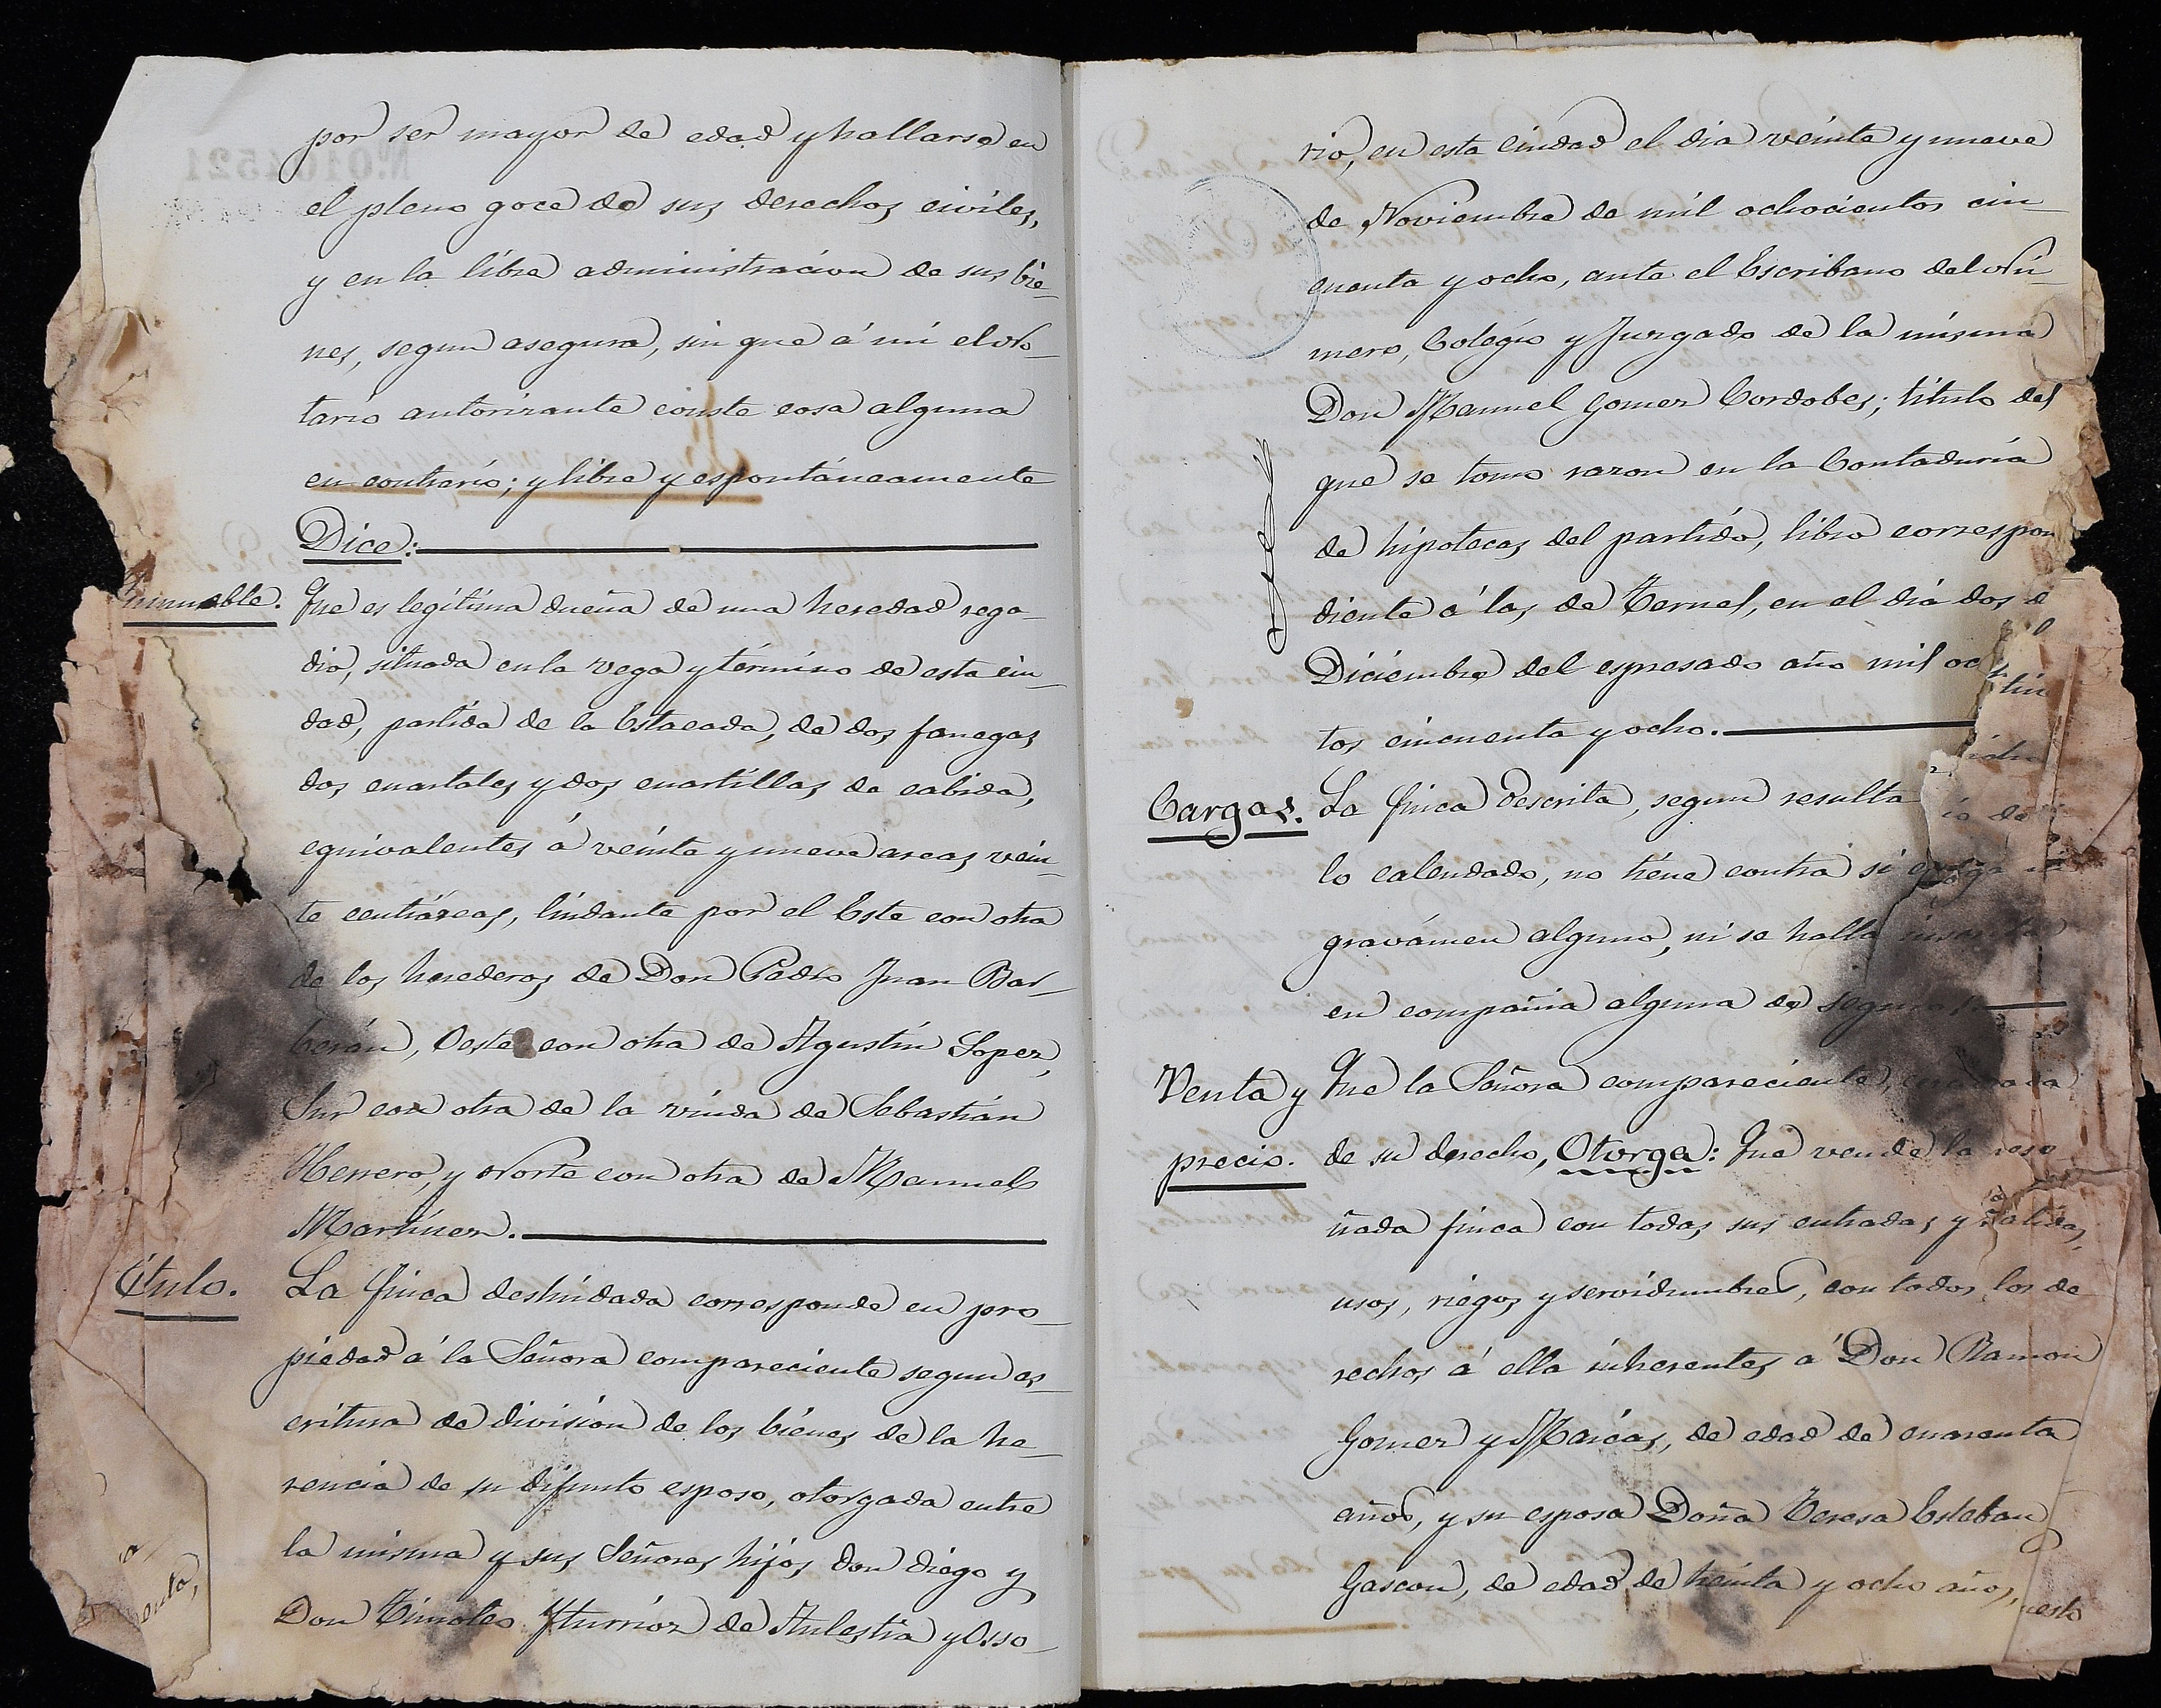 por ser mayor de edad y hallarse en
el pleno goce de sus derechos civiles,
y en la libre administracion de sus bie-
nes, segun asegura, sin que á mi el No-
tario autorizante conste cosa alguna
en contrario; y libre y espontáneamente
Dice:
Inmueble. Que es legítima dueña de una heredad rega-
dio, situada en la vega y término de esta ciu-
dad, partida de la Estacada, de dos fanegas
dos cuartales y dos cuartillas de cabida,
equivalentes á veinte y nueve areas vein-
te centiáreas, lindante por el Este con otra
de los herederos de Don Pedro Juan Bar-
berán, Oeste con otra de Agustín Lopez,
Sur con otra de la viuda de Sebastián
Herrero, y Norte con otra de Manuel
Martínez.
Título. La finca deslindada corresponde en pro-
piedad á la Señora compareciente segun es-
critura de division de los bienes de la he-
rencia de su difunto esposo, otorgada entre
la misma y sus Señores hijos Don Diego y
Don Timoteo Yturrioz de Aulestia y Oso-
rio, en esta Ciudad el dia veinte y nueve
de Noviembre de mil ochocientos cin-
cuenta y ocho, ante el Escribano del Nú-
mero, Colegio y Juzgado de la misma
Don Manuel Gomez Cordobes; título del
que se tomo razon en la Contaduría
de hipotecas del partido, libro correspon
diente á las de Teruel, en el dia dos d
Diciembre del espresado año mil oc
tos cincuenta y ocho.
Cargas. La finca descrita, segun resulta
lo calendado, no tiene contra si carga ni
gravámen alguno, ni se halla inscrita
en compañia alguna de seguros.
Venta y Que la Señora compareciente,
precio. de su derecho, Otorga: Que vende la rese
ñada finca con todas sus entradas y salidas,
usos, riegos y servidumbres, con todos los de
rechos á ella inherentes á Don Ramon
Gomez y Macías, de edad de cuarenta
años, y su esposa Doña Teresa Esteban
Gascon, de edad de treinta y ocho años,